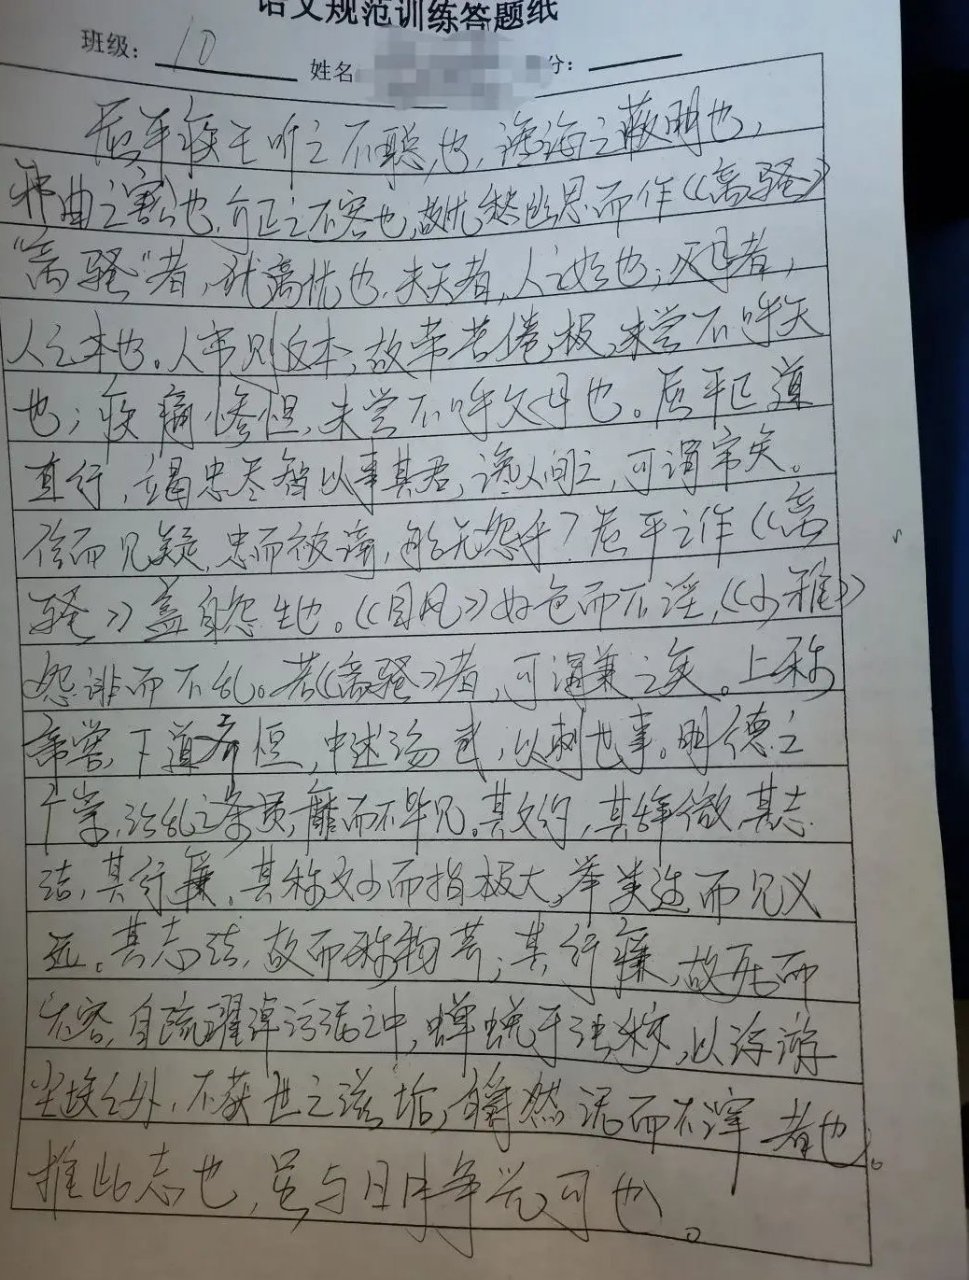 语文规范训练答题纸
班级: 10 姓名 分:
屈平疾王听之不聪也,谗谄之蔽明也,
邪曲之害公也,方正之不容也,故忧愁幽思而作《离骚》
“离骚”者,犹离忧也.夫天者,人之始也;父母者,
人之本也。人穷则反本,故劳苦倦极,未尝不呼天
也;疾痛惨怛,未尝不呼父母也。屈平正道
直行,竭忠尽智以事其君,谗人间之,可谓穷矣。
信而见疑,忠而被谤,能无怨乎?屈平之作《离
骚》盖自怨生也。《国风》好色而不淫,《小雅》
怨诽而不乱。若《离骚》者,可谓兼之矣。上称
帝喾,下道齐桓,中述汤武,以刺世事。明道德之
广崇,治乱之条贯,靡而不毕见。其文约,其辞微,其志
洁,其行廉,其称文小而指极大,举类迩而见义
远。其志洁,故而称物芳;其行廉,故死而
不容,自疏濯淖污泥之中,蝉蜕于浊秽,以浮游
尘埃之外,不获世之滋垢,皭然泥而不滓者也。
推此志也,虽与日月争光可也。